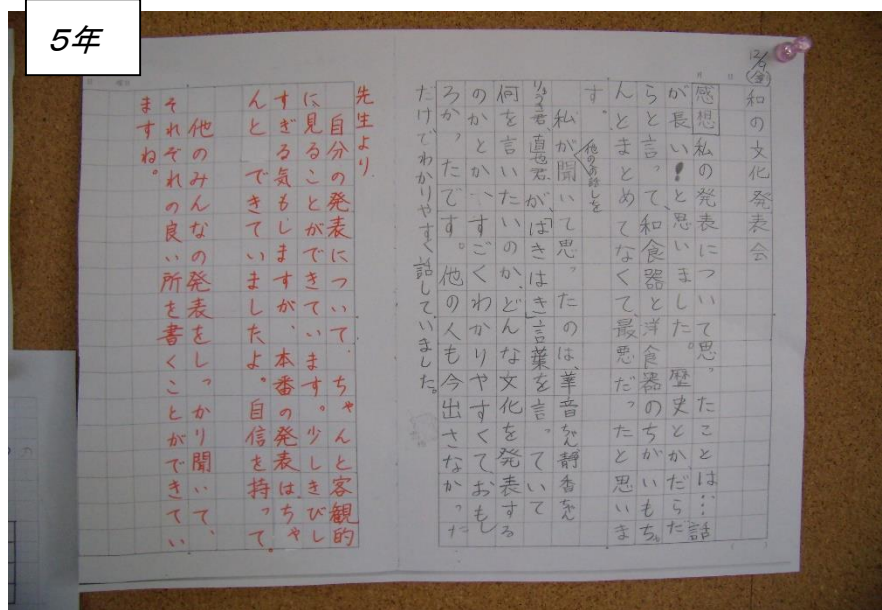 5年
12/9(金)
和の文化発表会
感想 私の発表について思ったことは…話
が長い!と思いました。歴史とかだらだ
らと言って、和食器と洋食器のちがいもちゃ
んとまとめてなくて、最悪だったと思いま
す。
私が他のお話しを聞いて思ったのは、華音ちゃん静香ちゃん
直也君が、「はきはき」言葉を言っていて
何を言いたいのか、どんな文化を発表する
のかとか、すごくわかりやすくておもし
ろかったです。他の人も今出さなかった
だけでわかりやすく話していました。
先生より
自分の発表について、ちゃんと客観的
に見ることができています。少しきびし
すぎる気もしますが、本番の発表は、ちゃ
んと できていましたよ。自信を持って。
他のみんなの発表をしっかり聞いて、
それぞれの良い所を書くことができてい
ますね。